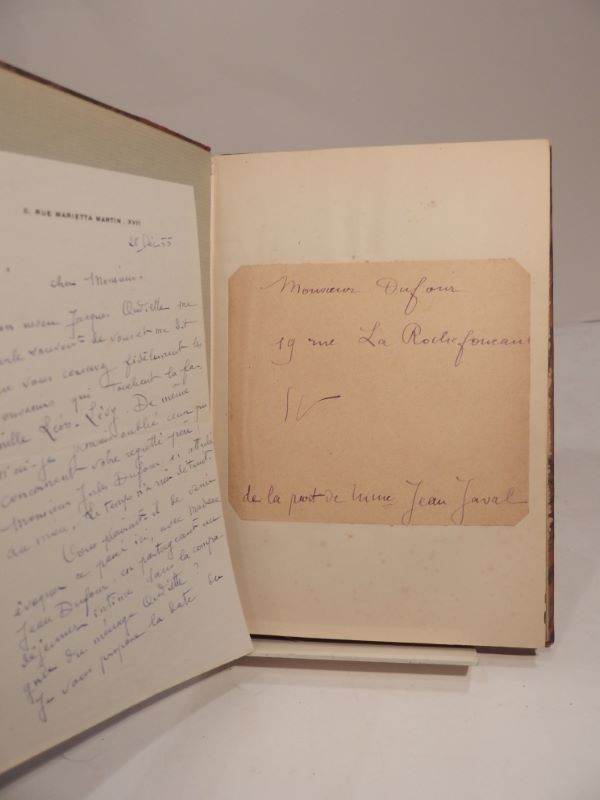 RUE MARIETTA MARTIN . XVI!
28 Déc 55
cher Monsieur.
on neveu Jacques Oudiette me
arle souvent de vous et me dit
ue vous conservez fidèlement les
ouvenirs qui touchent la fa-
mille Léon-Lévy. De même
n'ai-je jamais oublié ceux qui
concernent votre regretté père
Monsieur Jules Dufour si attaché
au mien. Le temps n'a rien détruit.
Vous plairait-il de venir
évoquer ce passé ici, avec Madame
Jean Dufour, en partageant un
déjeuner intime dans la compa-
gnie du ménage Oudiette?
Je vous propose la date du
Monsieur Dufour
19 rue La Rochefoucau
de la part de Mme Jean Javal